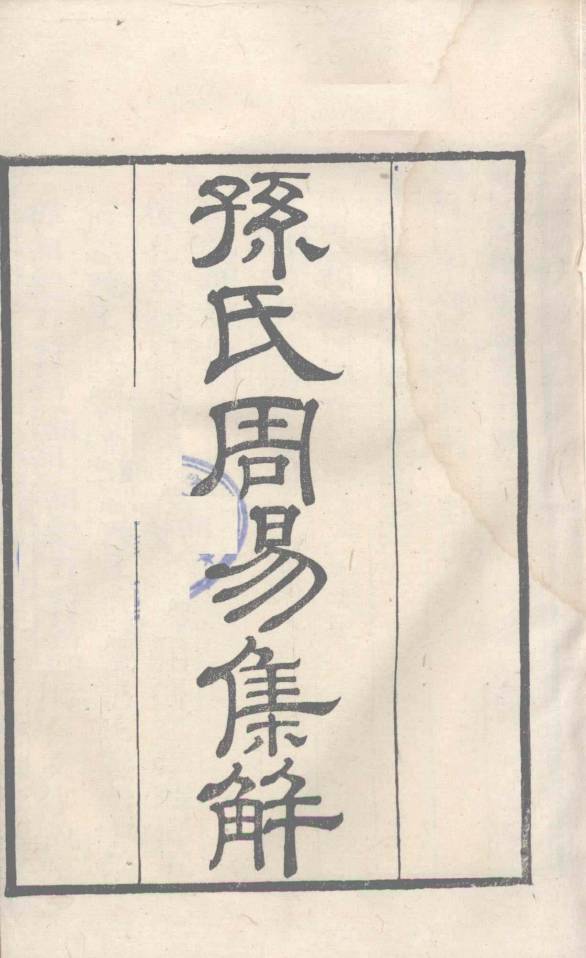 孫氏周易集解